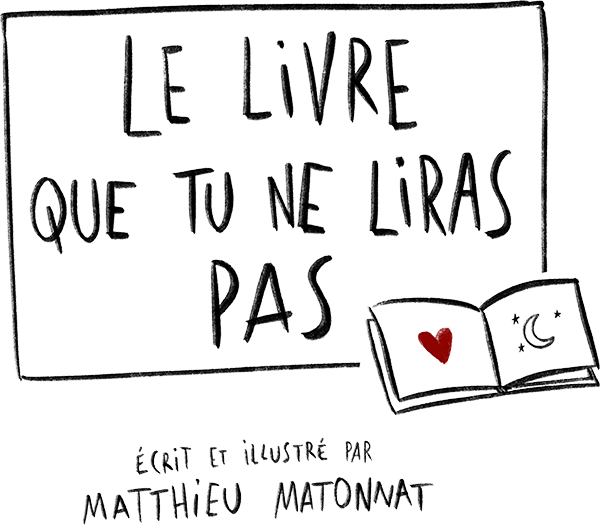 LE LiVRE
QUE TU NE LiRAS
PAS
ÉCRiT ET iLLUSTRÉ PAR
MATTHiEU MATONNAT